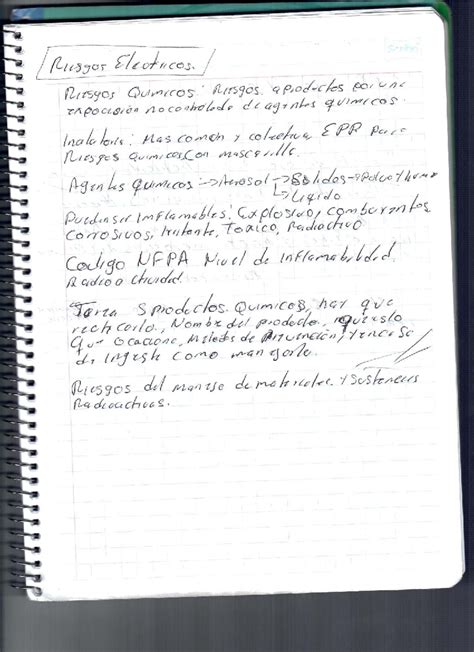 Riesgos Electricos.
Riesgos Quimicos: Riesgos a productos por una
exposicion no controlada de agentes quimicos.
Inalatoria: Mas comun y colectiva EPR para
Riesgos Quimicos con mascarilla.
Agentes Quimicos → Aerosol → Solidos → Polvo y humo
→ Liquido
Pueden ser Inflamables: Explosivo, comburentes,
Corrosivos, Irritante, Toxico, Radiactivo
Codigo NFPA Nivel de Inflamabilidad.
Radioactividad.
Tarea 5 productos Quimicos, hay que
Nombre del producto, riesgo
Que Ocacione, Metodos de Prevencion, y en caso
de Ingesta como manejarlo.
Riesgos del manejo de materiales y Sustancias
Radioactivas.